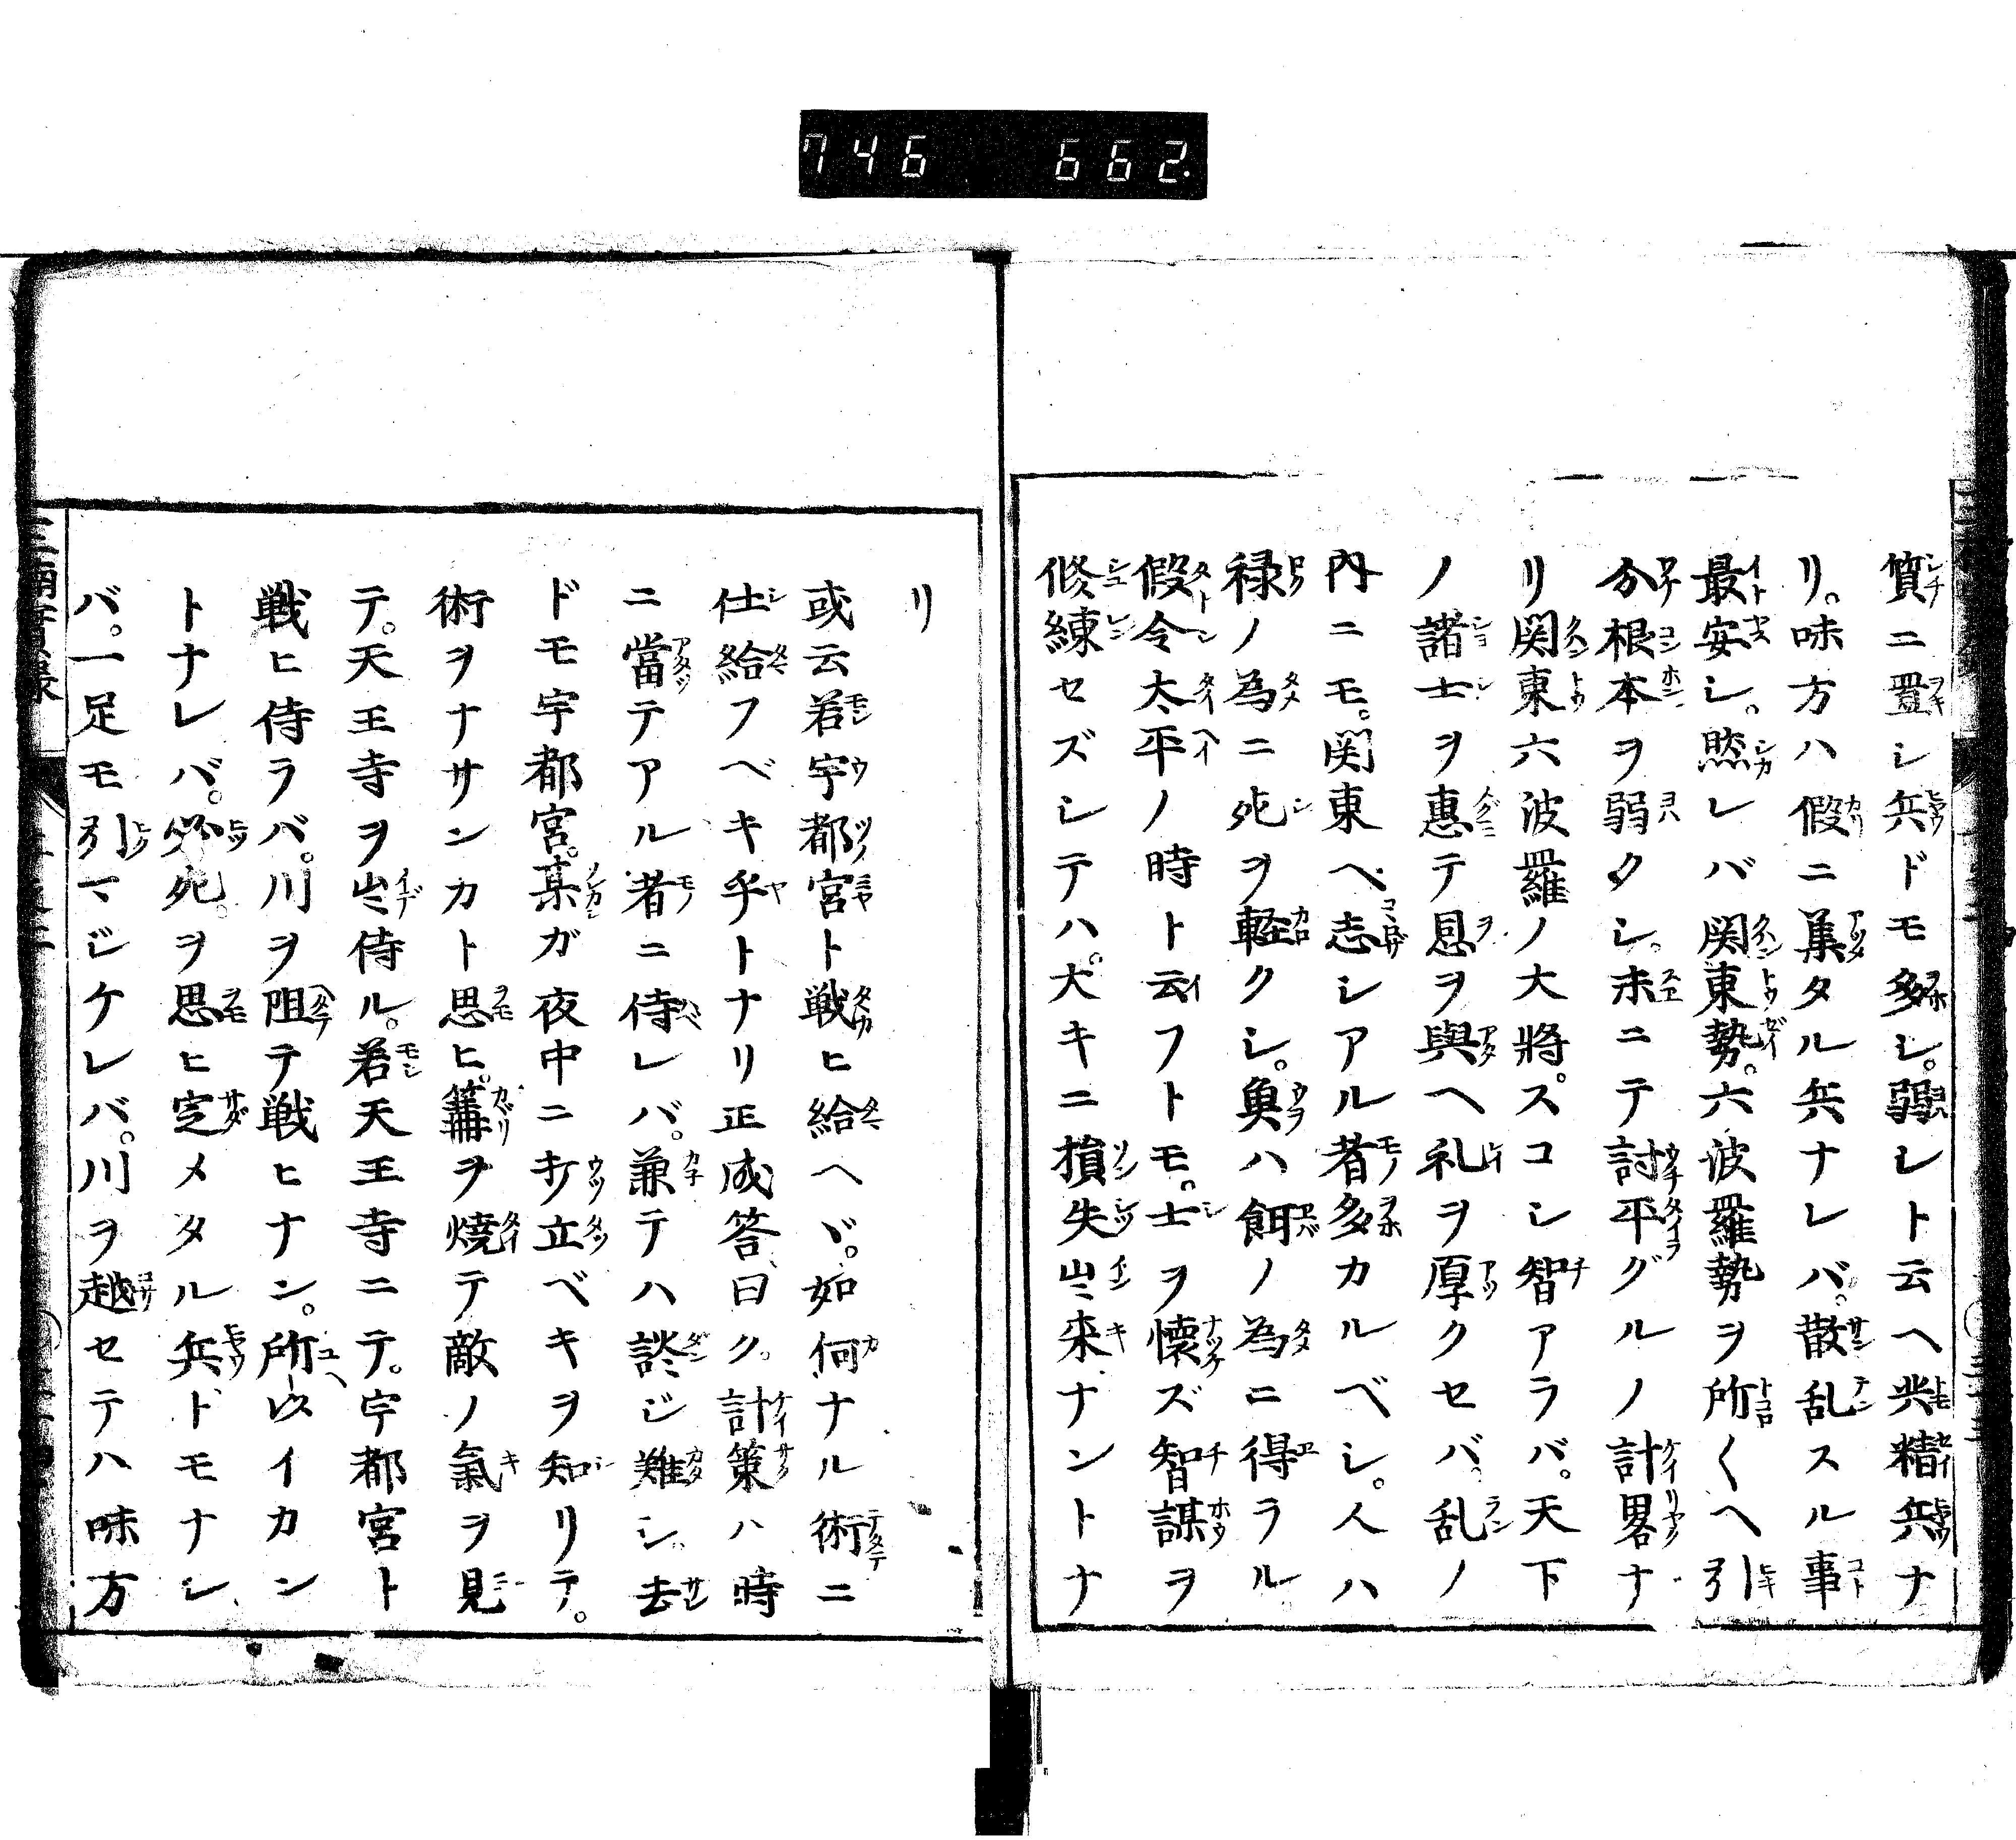 746 662.
質ニ置シ兵ドモ多シ。弱レト云ヘ共精兵ナ
リ。味方ハ假ニ集タル兵ナレバ。散乱スル事
最安シ。然レバ関東勢。六波羅勢ヲ所〱ヘ引
分根本ヲ弱クシ。末ニテ討平グルノ計畧ナ
リ関東六波羅ノ大將。スコシ智アラバ。天下
ノ諸士ヲ惠テ恩ヲ與ヘ礼ヲ厚クセバ。乱ノ
内ニモ。関東ヘ志シアル者多カルベシ。人ハ
禄ノ為ニ死ヲ軽クシ。魚ハ餌ノ為ニ得ラル。
假令太平ノ時ト云フトモ。士ヲ懐ズ智謀ヲ
修練セズシテハ。大キニ損失出来ナントナ
リ
或云若宇都宮ト戦ヒ給ヘヾ。如何ナル術ニ
仕給フベキ乎トナリ正成答曰ク。計策ハ時
ニ當テアル者ニ侍レバ。兼テハ談ジ難シ。去
ドモ宇都宮。某ガ夜中ニ打立ベキヲ知リテ。
術ヲナサンカト思ヒ。篝ヲ焼テ敵ノ氣ヲ見
テ。天王寺ヲ出侍ル。若天王寺ニテ。宇都宮ト
戦ヒ侍ラバ。川ヲ阻テ戦ヒナン。所以イカン
トナレバ。必死。ヲ思ヒ定メタル兵ドモナシ
バ。一足モ引マジケレバ。川ヲ越セテハ味方